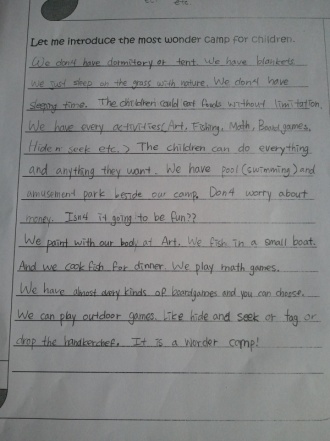 etc
Let me introduce the most wonder camp for children.
We don't have dormitory or tent. We have blankets
We just sleep on the grass with nature. We don't have
sleeping time. The children could eat foods without limitation.
We have every activities (Art, Fishing, Math, Board games,
Hide n seek etc.) The children can do everything
and anything they want. We have pool (swimming) and
amusement park beside our camp. Don't worry about
money. Isn't it going to be fun??
We paint with our body at Art. We fish in a small boat.
And we cook fish for dinner. We play math games.
We have almost every kinds of boardgames and you can choose.
We can play outdoor games. Like hide and seek or tag or
drop the handkerchief. It is a wonder camp!